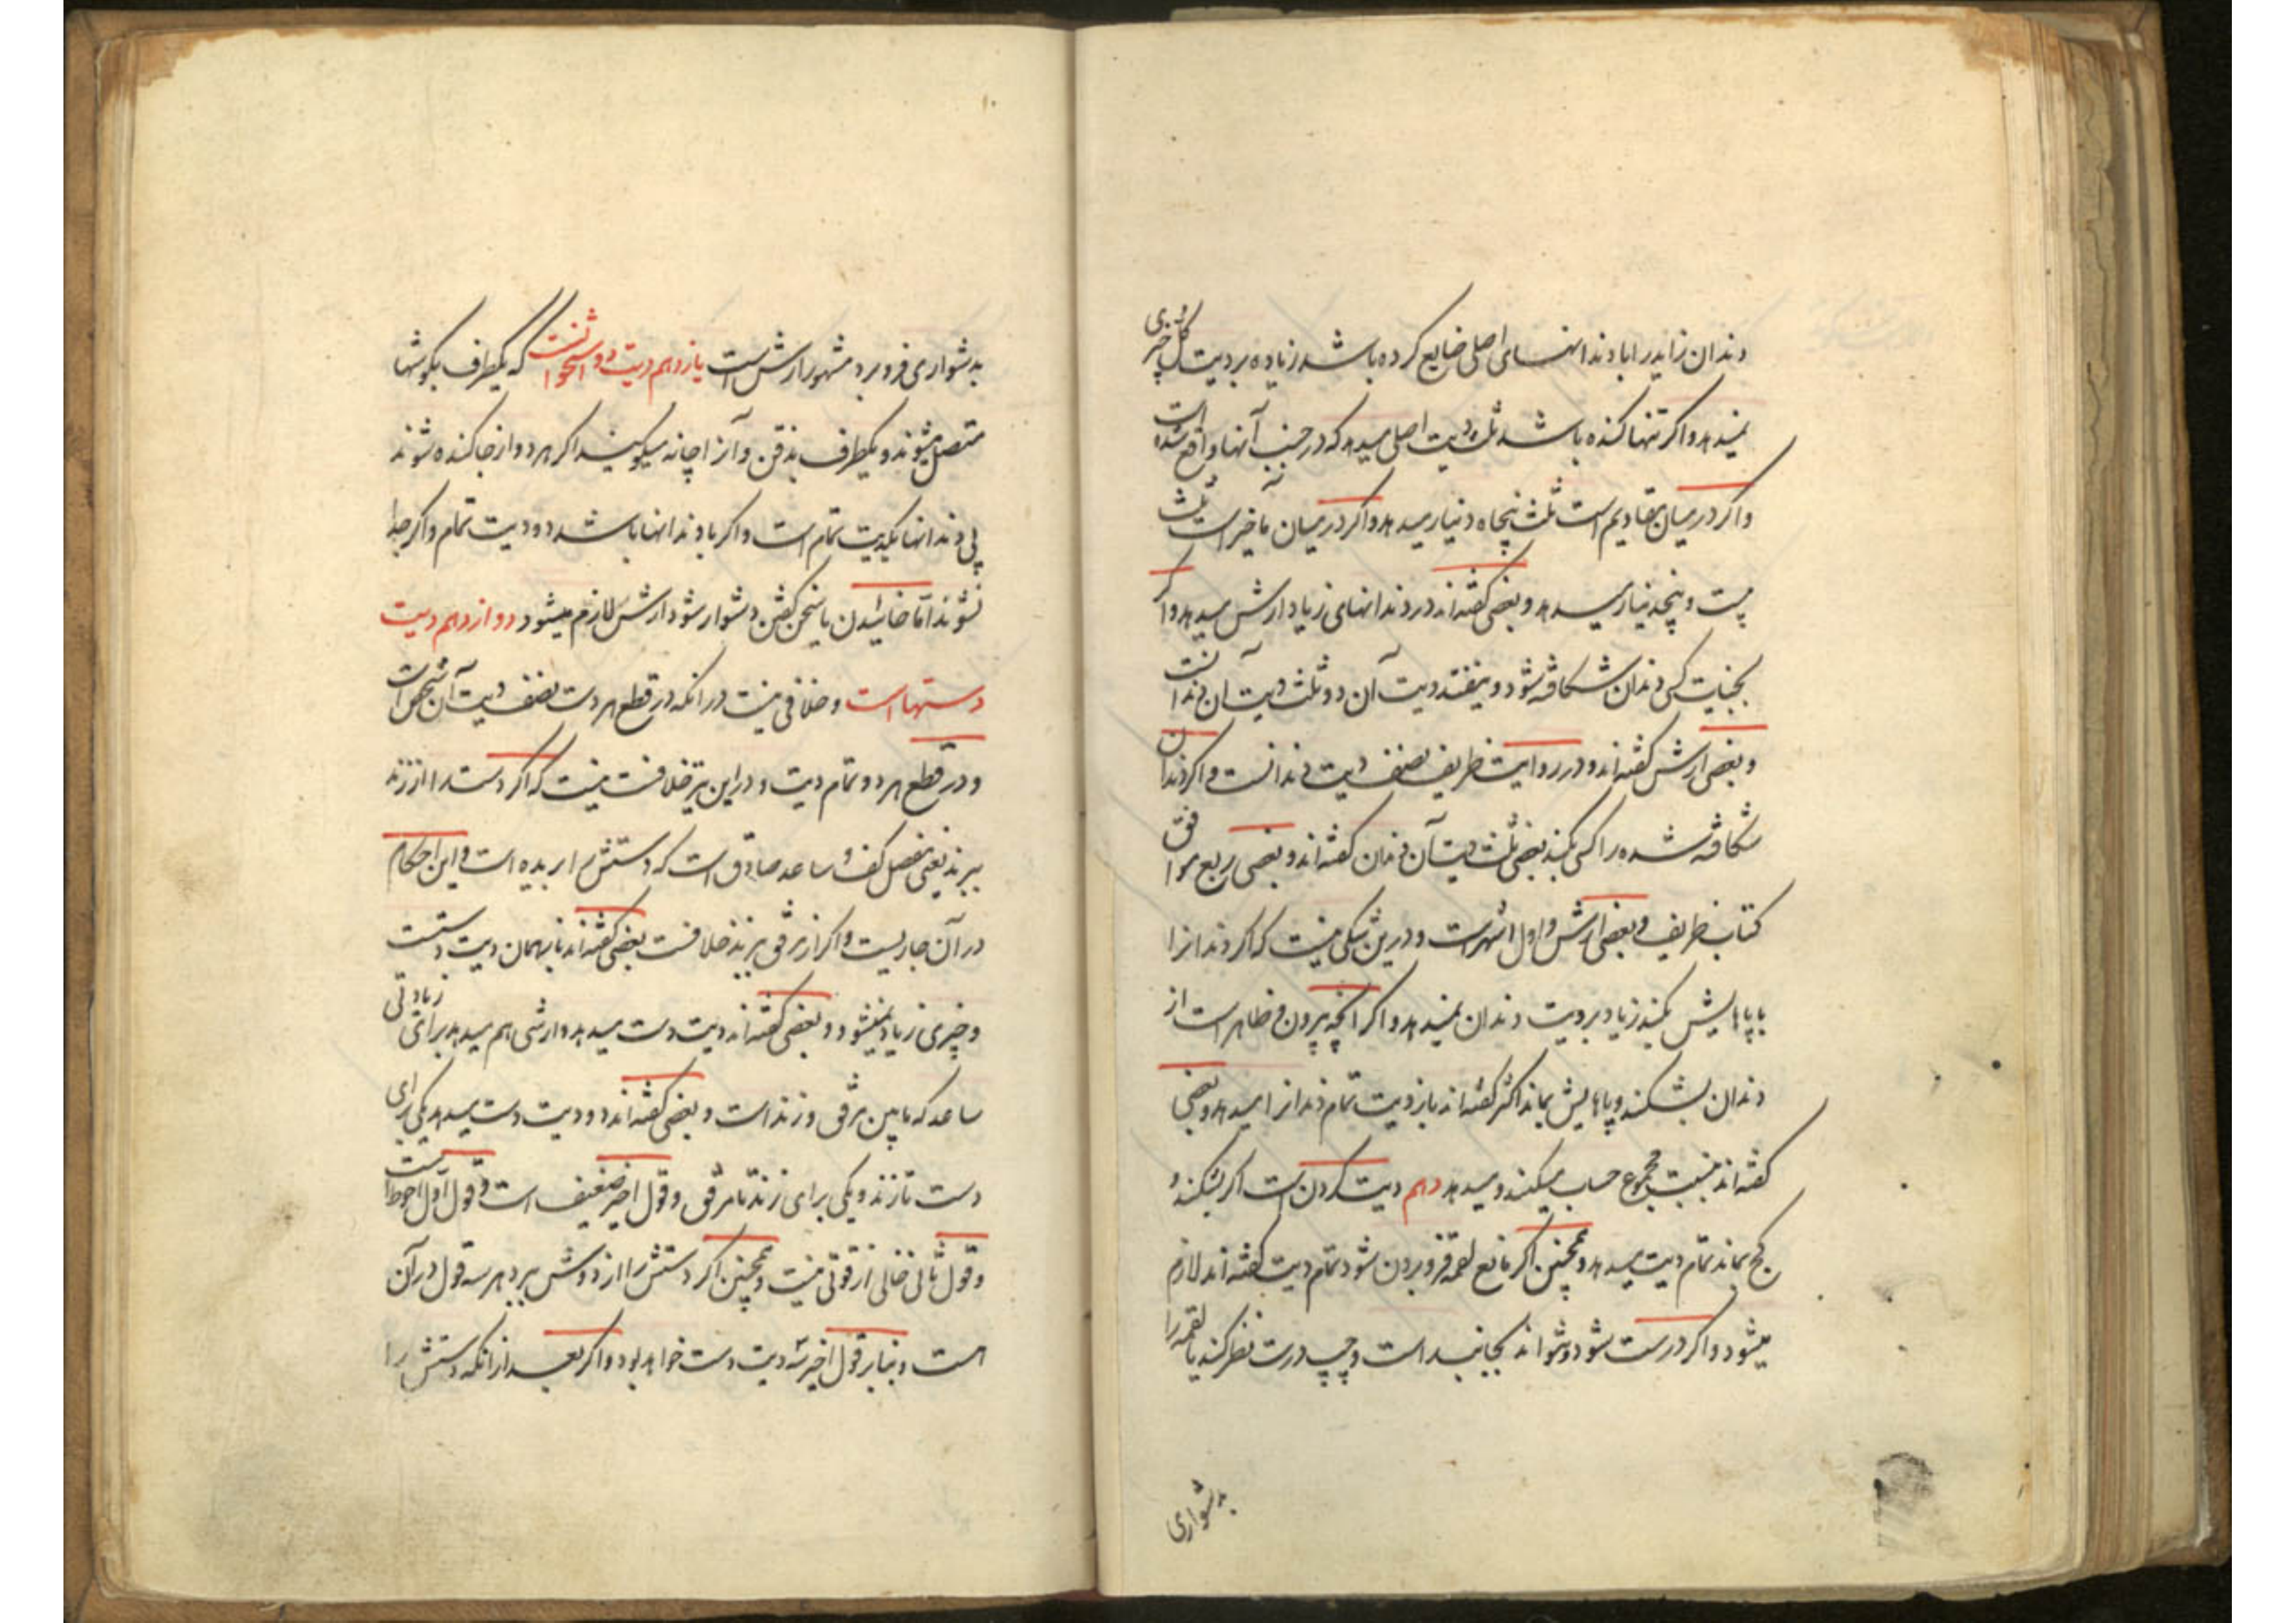 دندان زاید را با دندانهای اصلی ضایع کرده باشد زیاده بر دیت کل چیزی
نمیدهد و اگر تنها کنده باشد ثلث دیت اصلی میدهد که در جنب آنها واقع شده است
و اگر در میان مقادیم است ثلث پنجاه دینار میدهد و اگر در میان مآخیر است ثلث
بیست و پنجدینار میدهد و بعضی گفته‌اند در دندانهای زیاد ارش میدهد و اگر
بجنایت کسی دندان شکافته شود و نیفتد دیت آن دو ثلث دیت آن دندانست
و بعضی ارش گفته‌اند و در روایت ظریف نصف دیت دندانست و اگر دندان
شکافته شده را کسی بکند بعضی ثلث دیت آن دندان گفته‌اند و بعضی ربع موافق
کتاب ظریف و بعضی ارش و اول اشهر است و درین شکی نیست که اگر دندانرا
با پاهایش بکند زیاد بر دیت دندان نمیدهد و اگر آنچه بیرون و ظاهر است از
دندان بشکند و پاهایش بماند اکثر گفته‌اند باز دیت تمام دندانرا میدهد و بعضی
گفته‌اند بنسبت مجموع حساب میکنند و میدهد دهم دیت گردن است اگر بشکند و
کج بماند تمام دیت میدهد و همچنین اگر مانع لقمه فرو بردن شود تمام دیت گفته‌اند لازم
میشود و اگر درست شود و نتواند بجانب راست و چپ درست نظر کند یا لقمه را
بدشواری
بدشواری فرو برد مشهور ارش است یازدهم دیت دو استخوانست که یکطرف بگوشها
متصل میشوند و یکطرف بذقن و آنرا چانه میگویند اگر هر دو از جا کنده شوند
بی دندانها یکدیت تمام است و اگر با دندانها باشد دو دیت تمام و اگر جدا
نشوند اما خائیدن یا سخن گفتن دشوار شود ارش لازم میشود دوازدهم دیت
دستهاست و خلافی نیست در آنکه در قطع هر دست نصف دیت آن شخص است
و در قطع هر دو تمام دیت و در این نیز خلافت نیست که اگر دست را از زند
ببرند یعنی مفصل کف و ساعد صادق است که دستش را بریده است و این احکام
در آن جاریست و اگر از مرفق ببرند خلافست بعضی گفته‌اند باز همان دیت دستست
و چیزی زیاد نمیشود و بعضی گفته‌اند دیت دست میدهد و ارشی هم میدهد برای زیادتی
ساعد که مابین مرفق و زند است و بعضی گفته‌اند دو دیت دست میدهد یکی برای
دست تا زند و یکی برای زند تا مرفق و قول اخیر ضعیف است و قول اول احوط است
و قول ثانی خالی از قوتی نیست و همچنین اگر دستش را از دوش ببرد هر سه قول در آن
هست و بنابر قول اخیر سه دیت دست خواهد بود و اگر بعد از آنکه دستش را